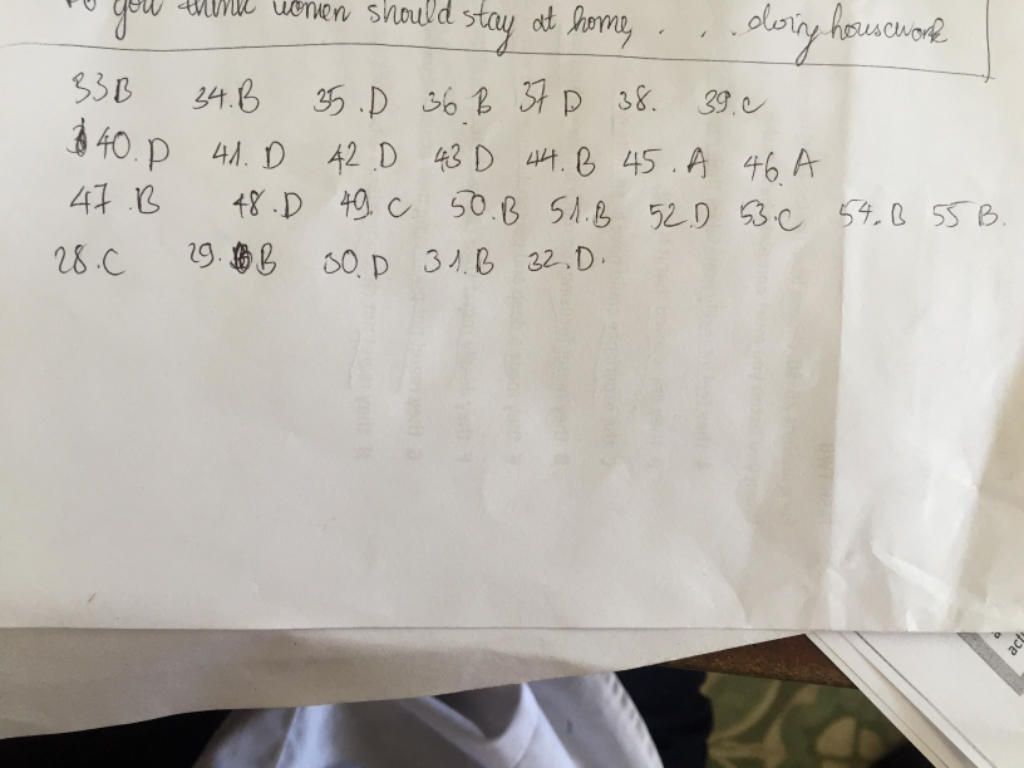 you think women should stay at home, . . . doing housework
33B 34.B 35.D 36.B 37 D 38. 39.C
40.D 41.D 42.D 43 D 44.B 45.A 46.A
47.B 48.D 49.C 50.B 51.B 52.D 53.C 54.B 55 B.
28.C 29.B 30.D 31.B 32.D.